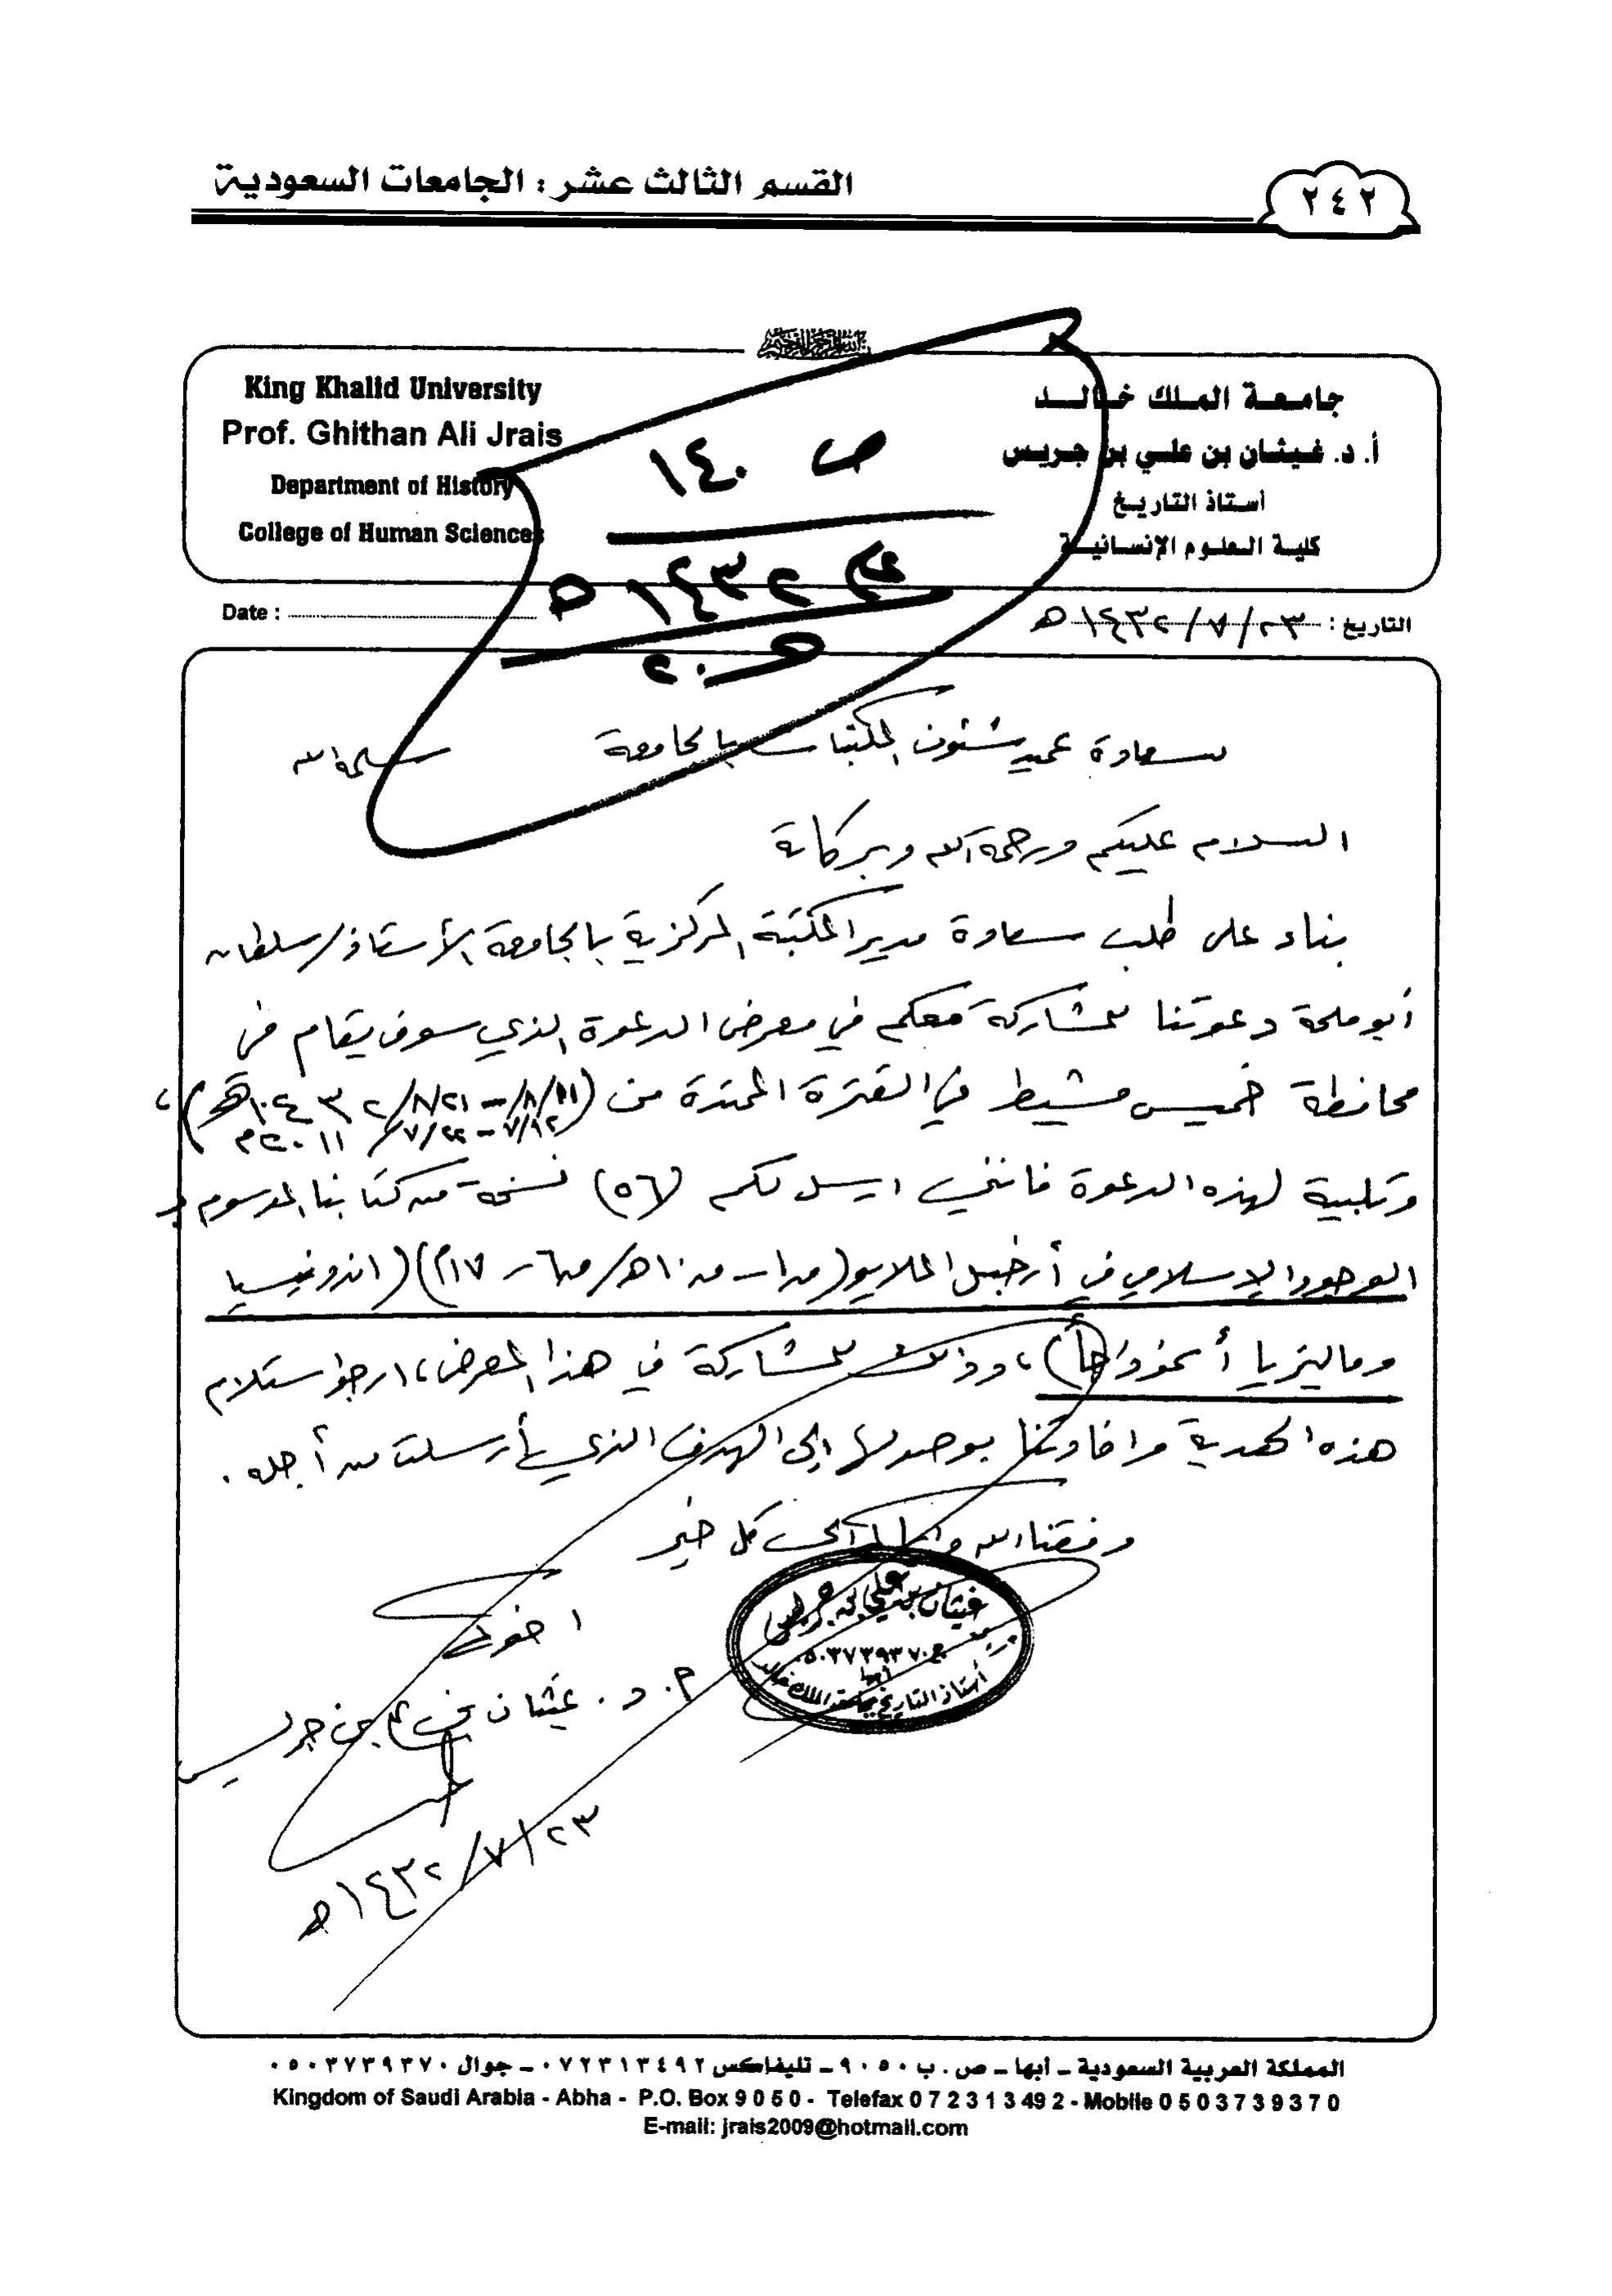 ٢٤٢
القسم الثالث عشر : الجامعات السعودية
بسم الله الرحمن الرحيم
جامعة الملك خالد
أ. د. غيثان بن علي بن جريس
أستاذ التاريخ
كلية العلوم الإنسانية
King Khalid University
Prof. Ghithan Ali Jrais
Department of History
College of Human Sciences
ص ١٤٠
١٤٣٢ هـ
التاريخ : ٢٣/٧/١٤٣٢ هـ
Date :
سعادة عميد شئون المكتبات بالجامعة سلمه الله
السلام عليكم ورحمة الله وبركاته
بناء على طلب سعادة مدير المكتبة المركزية بالجامعة الأستاذ/سلطان
أبو ملحة دعوتنا للمشاركة معكم في معرض الدعوة الذي سوف يقام في
محافظة خميس مشيط في الفترة الممتدة من (١١/٨ – ٢١/٨/١٤٣٢هـ)،
١٢/٧ – ٢٢/٧/٢٠١١م
وتلبية لهذه الدعوة فانني ارسل لكم (٥٦) نسخة من كتابنا الموسوم بـ
الوجود الإسلامي في أرخبيل الملايو (من ١ – ١٠هـ / من ٦ – ١٧م) (اندونيسيا
وماليزيا أنموذجاً)، وذلك للمشاركة في هذا المعرض، ارجو استلام
هذه الهدية وافادتنا بوصولها إلى الهدف الذي أرسلت من أجله .
وفقنا الله وإياكم إلى كل خير
اخوكم
أ. د. غيثان بن علي بن جريس
٢٣/٧/١٤٣٢ هـ
غيثان بن علي بن جريس
ج ٠٥٠٣٧٣٩٣٧٠
أبها
أستاذ التاريخ بجامعة الملك خالد
المملكة العربية السعودية – أبها – ص . ب ٩٠٥٠ – تليفاكس ٠٧٢٣١٣٤٩٢ – جوال ٠٥٠٣٧٣٩٣٧٠
Kingdom of Saudi Arabia - Abha - P.O. Box 9 0 5 0 - Telefax 0 7 2 3 1 3 49 2 - Mobile 0 5 0 3 7 3 9 3 7 0
E-mail: jrais2009@hotmail.com